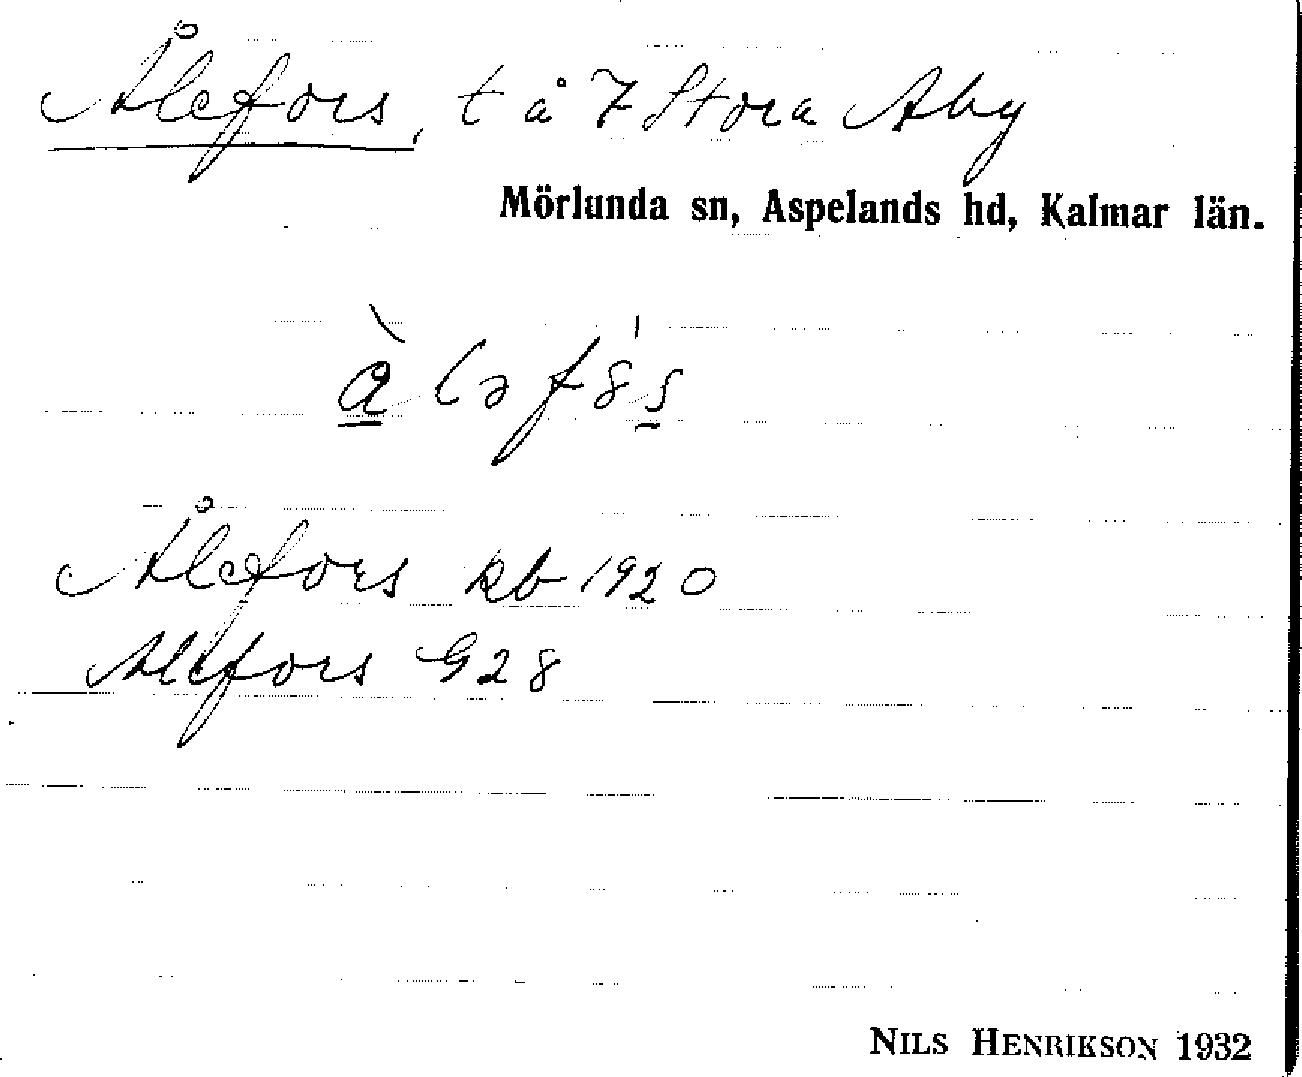 Ålefors, t å 7 Stora Aby
Mörlunda sn, Aspelands hd, Kalmar län.
Ålefors kb 1920
Alefors G28
NILS HENRIKSON 1932